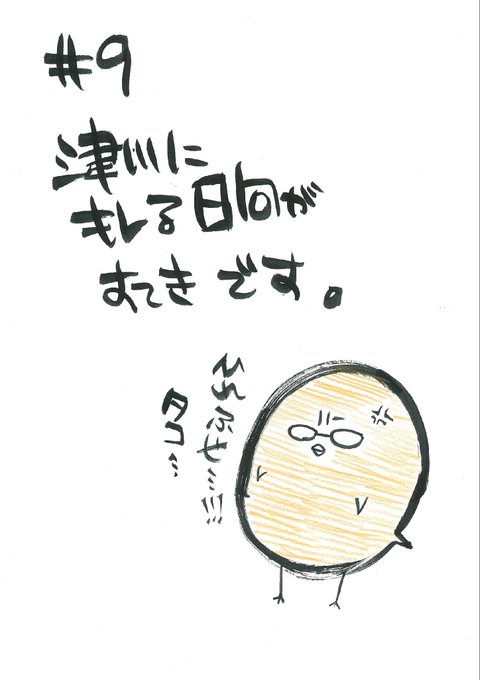 #9
津川に
キレる日向が
すてきです。
タコ…